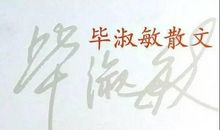 毕淑敏散文
毕淑敏